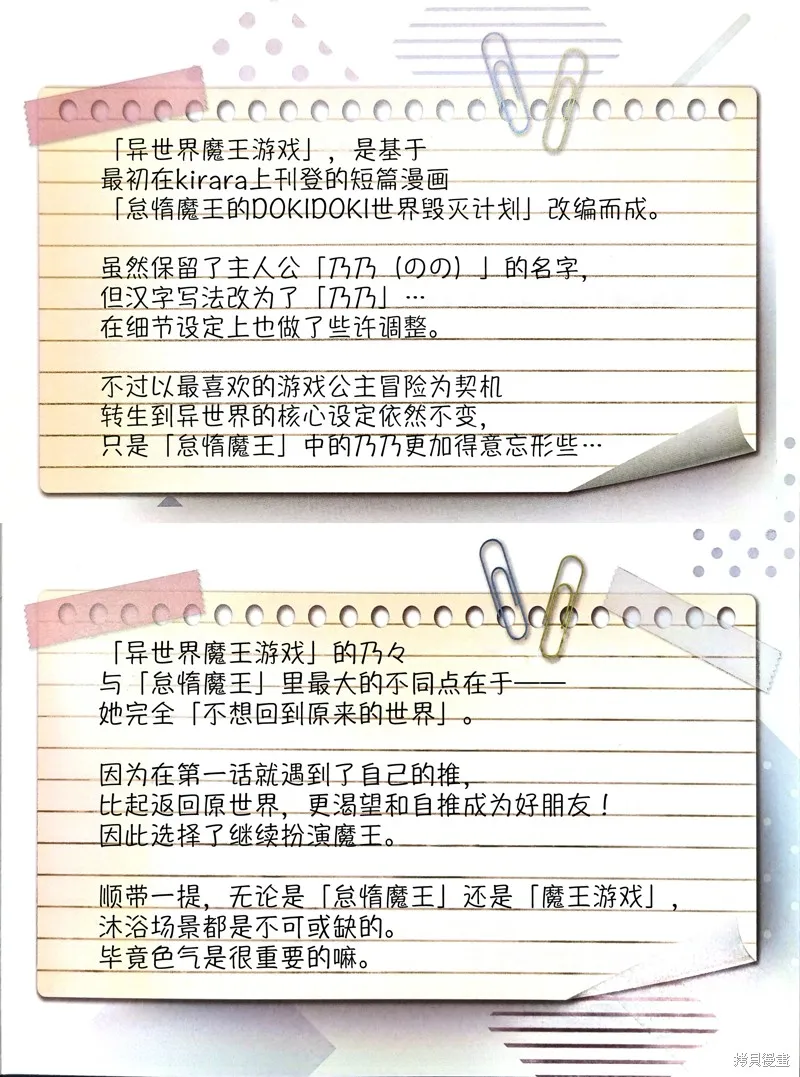 「异世界魔王游戏」，是基于
最初在kirara上刊登的短篇漫画
「怠惰魔王的DOKIDOKI世界毁灭计划」改编而成。
虽然保留了主人公「乃乃（のの）」的名字，
但汉字写法改为了「乃乃」…
在细节设定上也做了些许调整。
不过以最喜欢的游戏公主冒险为契机
转生到异世界的核心设定依然不变，
只是「怠惰魔王」中的乃乃更加得意忘形些…
「异世界魔王游戏」的乃々
与「怠惰魔王」里最大的不同点在于——
她完全「不想回到原来的世界」。
因为在第一话就遇到了自己的推，
比起返回原世界，更渴望和自推成为好朋友！
因此选择了继续扮演魔王。
顺带一提，无论是「怠惰魔王」还是「魔王游戏」，
沐浴场景都是不可或缺的。
毕竟色气是很重要的嘛。
拷貝漫畫